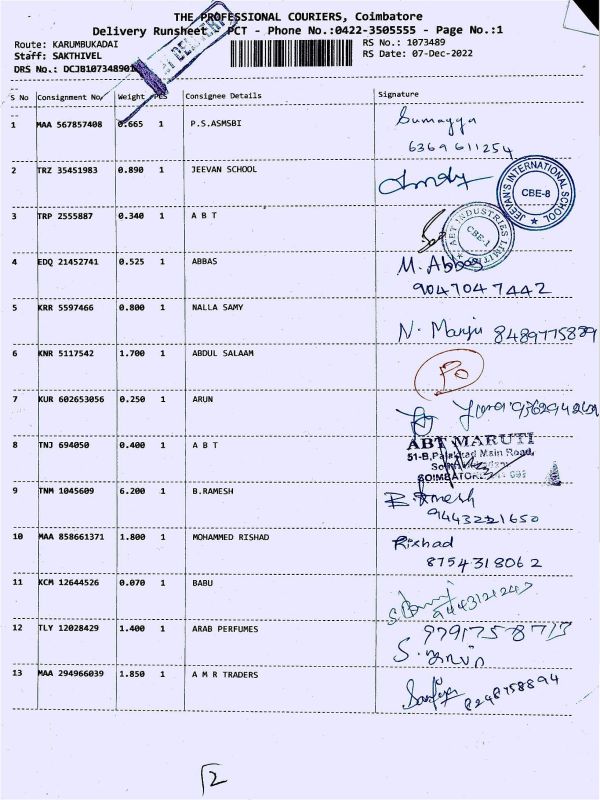 THE PROFESSIONAL COURIERS, Coimbatore
Delivery Runsheet PCT - Phone No.:0422-3505555 - Page No.:1
Route: KARUMBUKADAI RS No.: 1073489
Staff: SAKTHIVEL RS Date: 07-Dec-2022
DRS No.:
S No Consignment No Weight PCS Consignee Details Signature
1 MAA 567857408 0.665 1 P.S.ASMSBI Sumayya
6369611254
2 TRZ 35451983 0.890 1 JEEVAN SCHOOL
JEEVAN'S INTERNATIONAL SCHOOL CBE-8
3 TRP 2555887 0.340 1 A B T
ABT INDUSTRIES LIMITED CBE-1
4 EDQ 21452741 0.525 1 ABBAS M. Abbas
9047047442
5 KRR 5597466 0.800 1 NALLA SAMY N. Manju 8489775889
6 KNR 5117542 1.700 1 ABDUL SALAAM
7 KUR 602653056 0.250 1 ARUN
8 TNJ 694050 0.400 1 A B T ABT MARUTI
51-B, Palakkad Main Road,
9 TNM 1045609 6.200 1 B.RAMESH B. Ramesh
9443221650
10 MAA 858661371 1.800 1 MOHAMMED RISHAD Rixhad
8754318062
11 KCM 12644526 0.070 1 BABU
12 TLY 12028429 1.400 1 ARAB PERFUMES
13 MAA 294966039 1.850 1 A M R TRADERS
8248758894
12